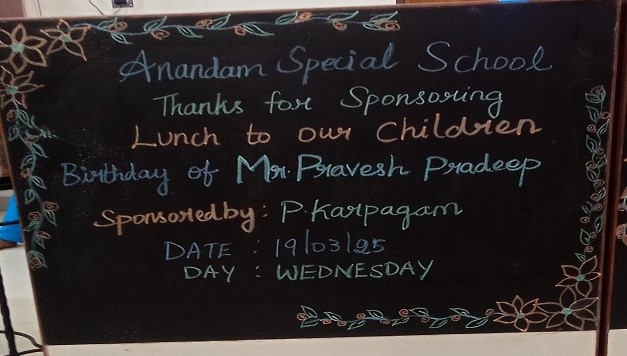 Anandam Special School
Thanks for Sponsoring
Lunch to our Children
Birthday of Mr. Pravesh Pradeep
Sponsored by : P. Karpagam
DATE : 19/03/25
DAY : WEDNESDAY